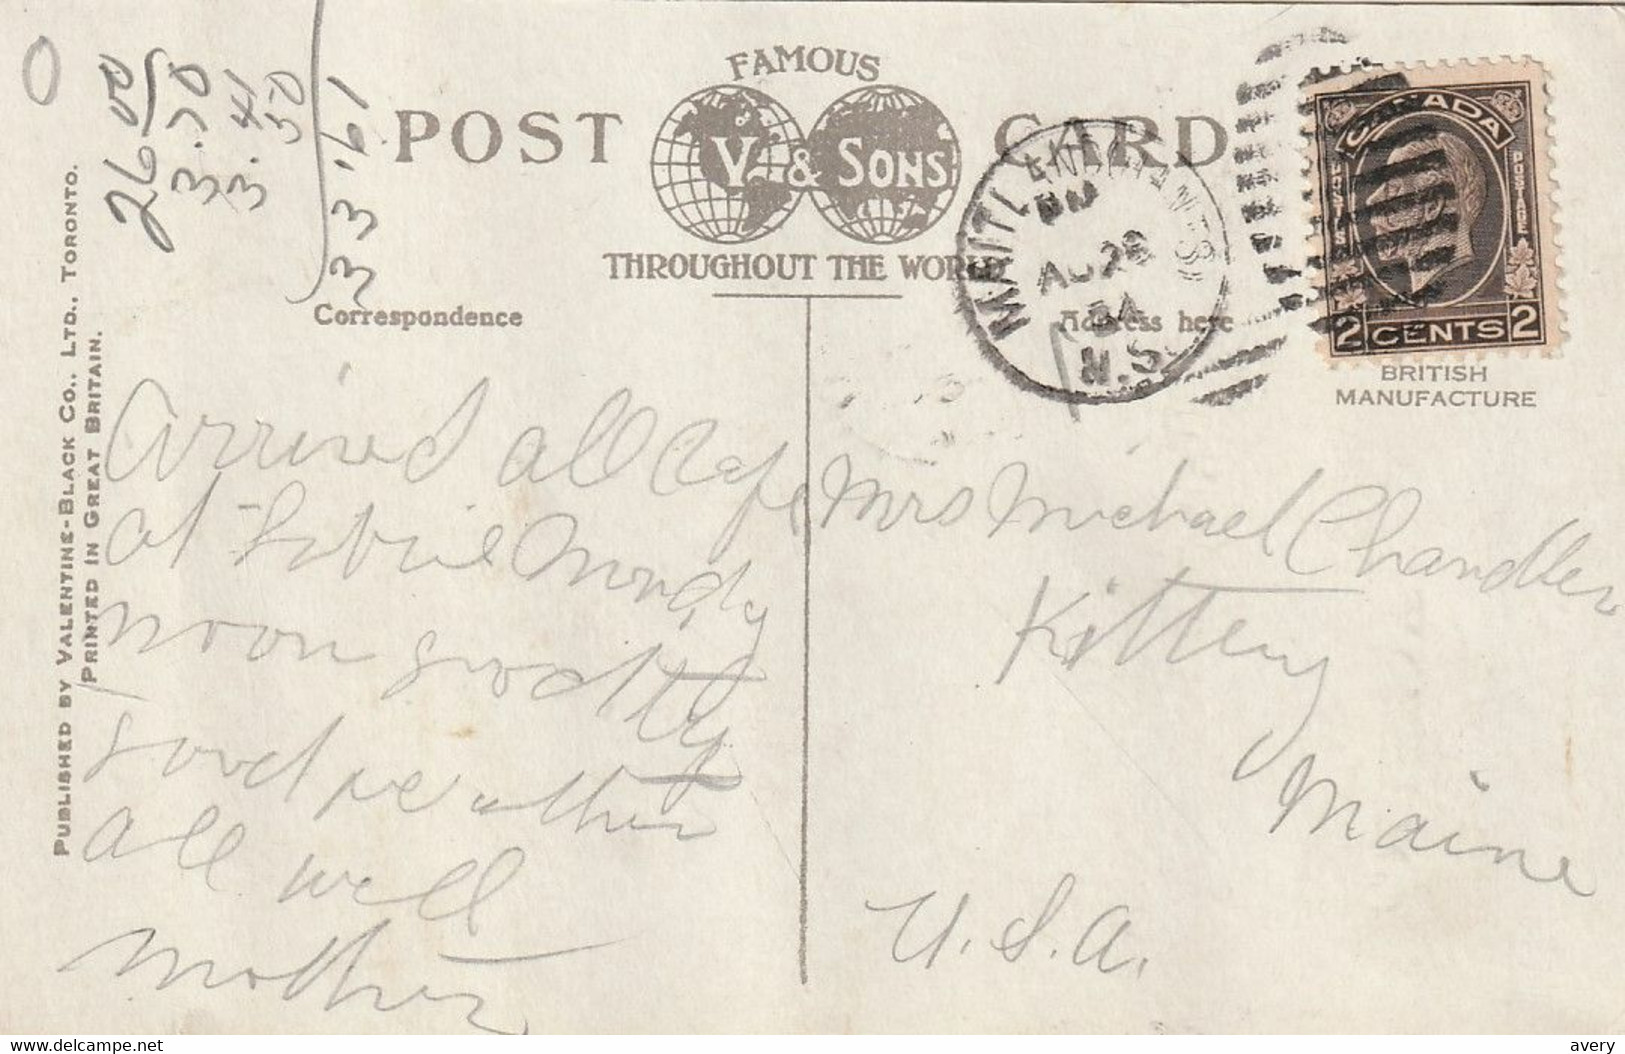 26 00
3.70
3.41
50
33'61
FAMOUS
POST CARD
V. & SONS
THROUGHOUT THE WORLD
Correspondence
Address here
MAITLAND (HANTS)
PM
AU 28
34
N.S.
CANADA
POSTES
POSTAGE
2 CENTS 2
BRITISH
MANUFACTURE
PUBLISHED BY VALENTINE-BLACK CO., LTD., TORONTO.
PRINTED IN GREAT BRITAIN.
Arrived all safe
at Monday
noon
good weather
all well
Mother
Mrs Michael Chandler
Kittery
Maine
U.S.A.
www.delcampe.net
avery